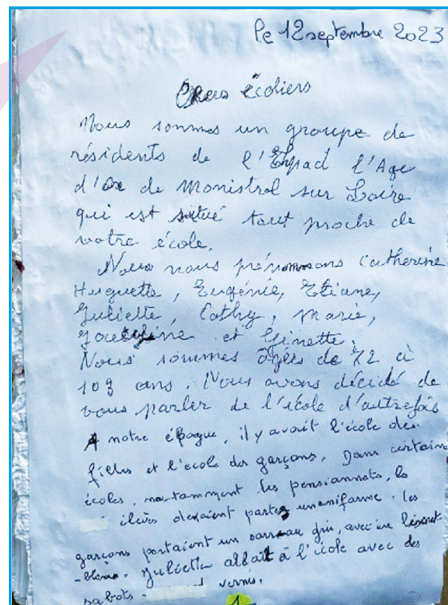 Le 12 septembre 2023
Chers écoliers
Nous sommes un groupe de
résidents de l'Ehpad l'Age
d'or de Monistrol sur Loire
qui est situé tout proche de
votre école.
Nous nous prénommons Catherine
Huguette, Eugénie, Etiane,
Juliette, Cathy, Marie,
Jocelyne et Ginette.
Nous sommes âgées de 72 à
103 ans. Nous avons décidé de
vous parler de l'école d'autrefois
A notre époque, il y avait l'école des
filles et l'école des garçons. Dans certaine
écoles, notamment les pensionnats, les
élèves devaient porter un uniforme. les
garçons portaient un sarrau gris, avec un
Juliette allait à l'école avec des
sabots vernis.
1